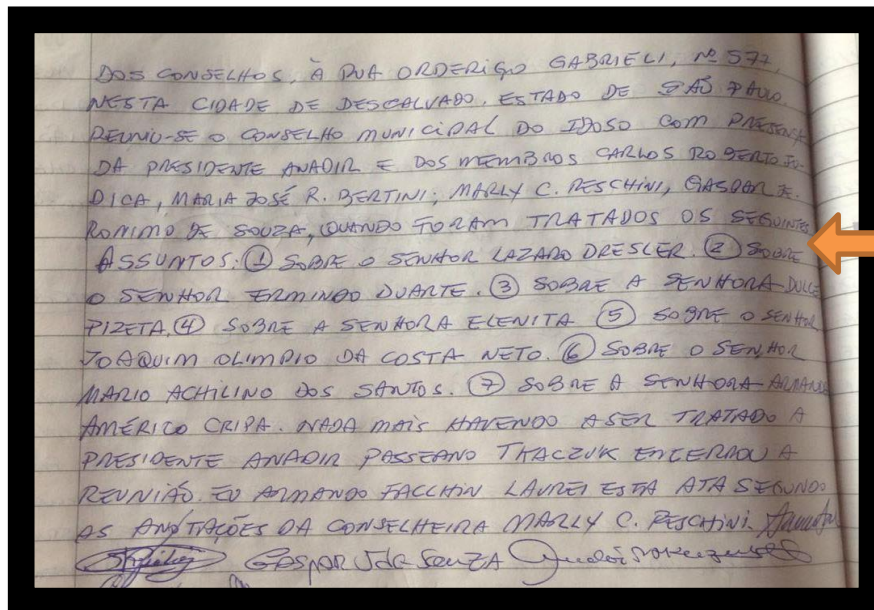 DOS CONSELHOS, À RUA ORDERIGO GABRIELI, Nº 577,
NESTA CIDADE DE DESCALVADO. ESTADO DE SÃO PAULO.
REUNIU-SE O CONSELHO MUNICIPAL DO IDOSO COM PRESENÇA
DA PRESIDENTE ANADIR E DOS MEMBROS CARLOS ROBERTO JU-
DICA, MARIA JOSÉ R. BERTINI; MARLY C. PESCHINI, GASPAR JE-
RONIMO DE SOUZA, QUANDO FORAM TRATADOS OS SEGUINTES
ASSUNTOS: ① SOBRE O SENHOR LAZARO DRESLER. ② SOBRE
O SENHOR ERMINDO DUARTE. ③ SOBRE A SENHORA DULCE
PIZETA. ④ SOBRE A SENHORA ELENITA ⑤ SOBRE O SENHOR
JOAQUIM OLIMPIO DA COSTA NETO. ⑥ SOBRE O SENHOR
MARIO ACHILINO DOS SANTOS. ⑦ SOBRE A SENHORA
AMÉRICO CRIPA. NADA MAIS HAVENDO A SER TRATADO A
PRESIDENTE ANADIR PASSEANO TKACZUK ENCERROU A
REUNIÃO. EU ARMANDO FACCHIN LAVREI ESTA ATA SEGUNDO
AS ANOTAÇÕES DA CONSELHEIRA MARLY C. PESCHINI.
GASPAR J de SouZA